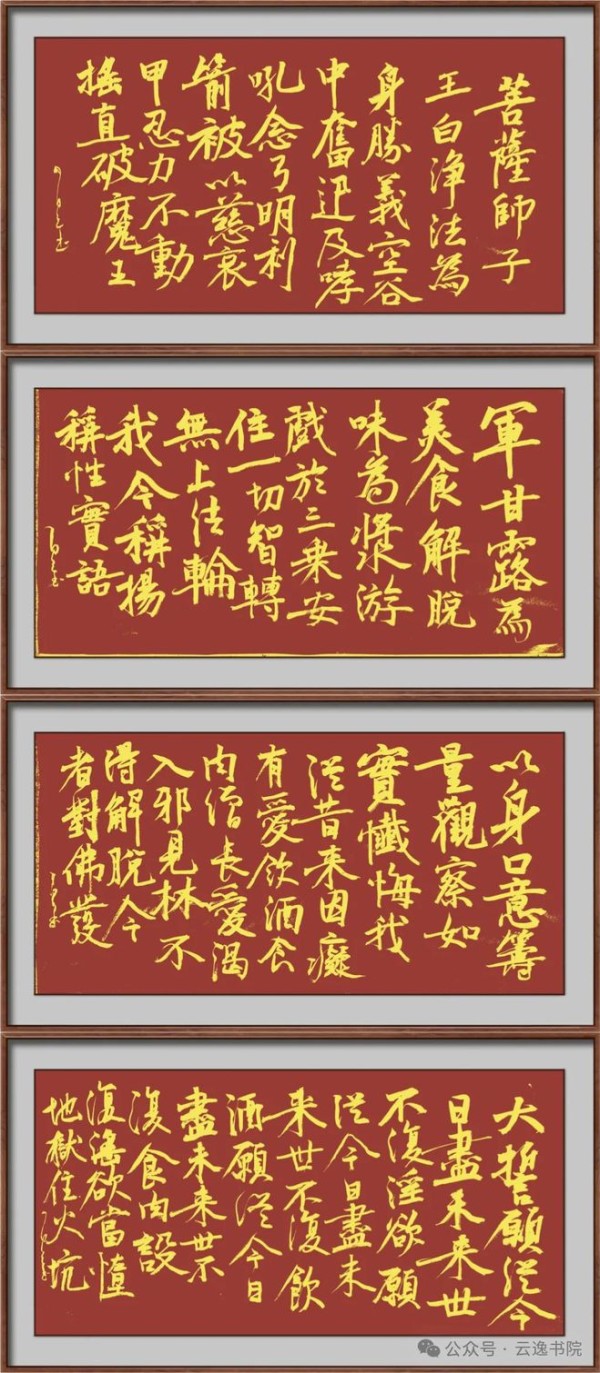 菩薩師子
王白淨法為
身勝義空谷
中奮迅及哮
吼念弓明利
箭被以慈哀
甲忍力不動
搖直破魔王
軍甘露為
美食解脫
味為漿游
戲於三乘安
住一切智轉
無上法輪
我今稱揚
稱性實語
以身口意籌
量觀察如
實懺悔我
從昔來因癡
有愛飲酒食
肉增長愛渴
入邪見林不
得解脫今
者對佛發
大誓願從今
日盡未來世
不復淫欲願
從今日盡未
來世不復飲
酒願從今日
盡未來世不
復食肉設
復淫欲當墮
地獄住火坑
公众号·云逸书院